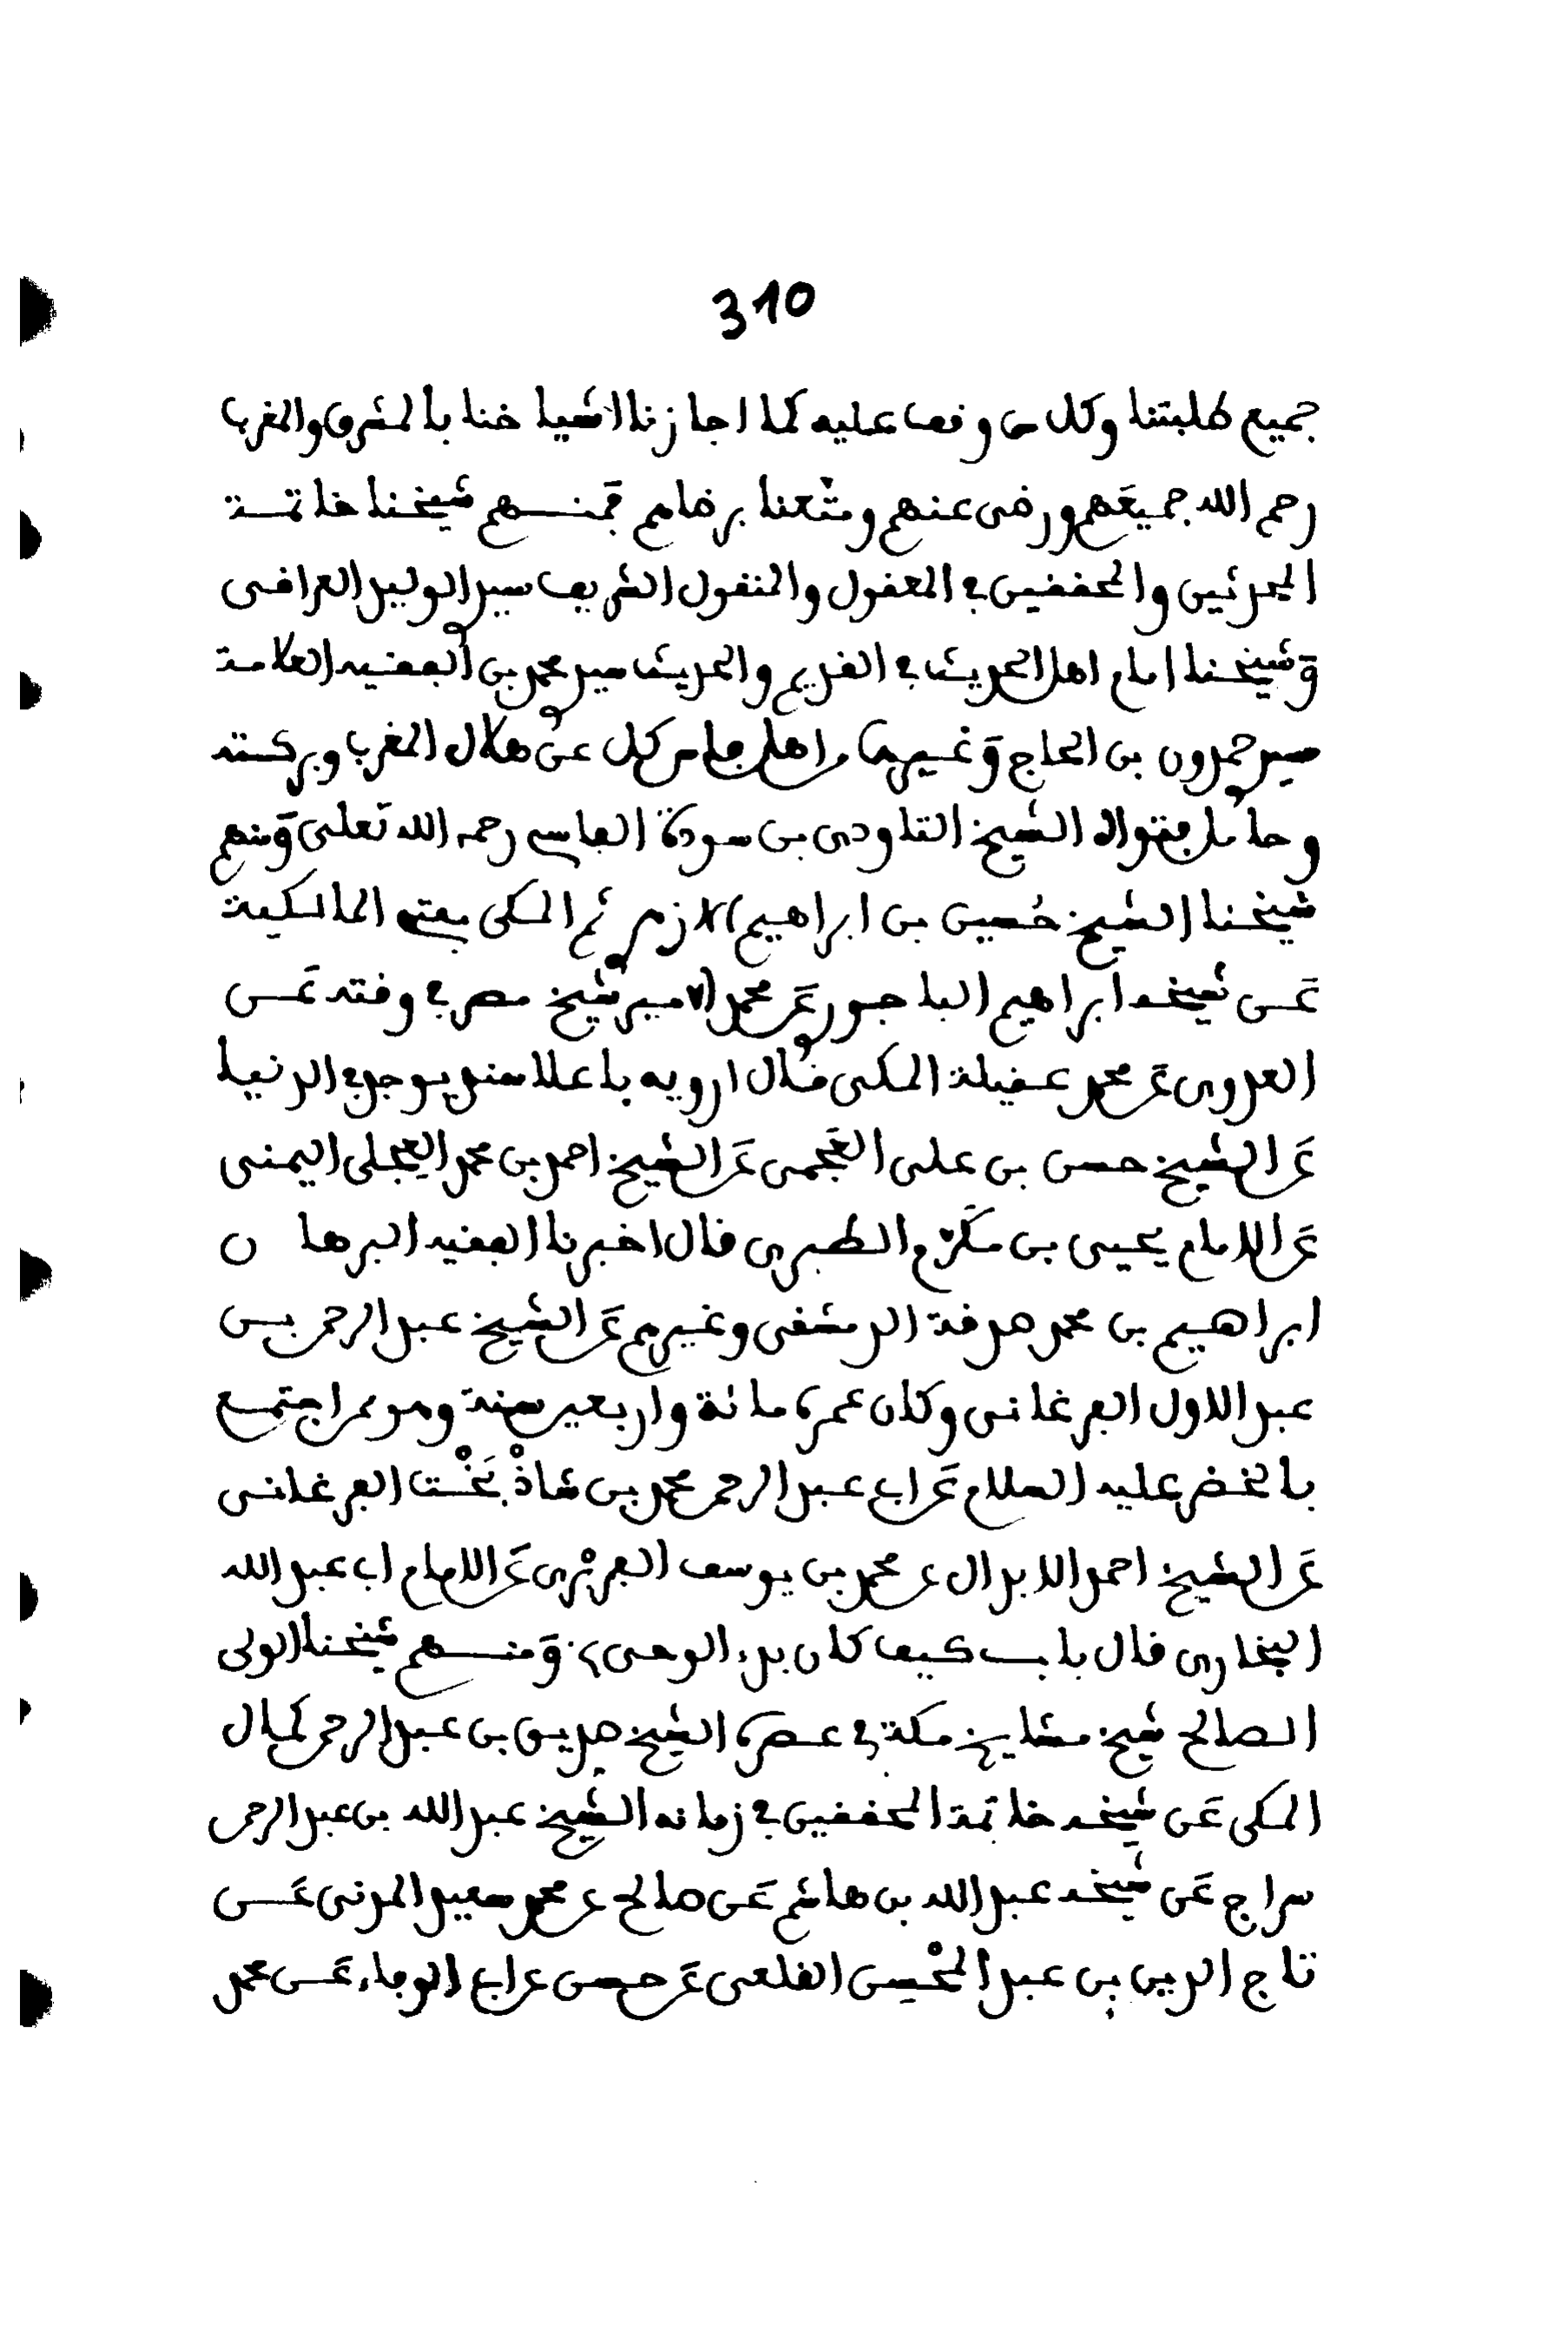 310
جميع طلبتنا وكل من وقف عليه كما اجازنا اشياخنا بالمشرق والمغرب
رحم الله جميعهم ورضى عنهم ومتعنا برضاهم فمنهم شيخنا خاتمة
المحدثين والمحققين في المعقول والمنقول الشريف سيد الوليد العراقى
وشيخنا امام اهل الحديث في القديم والحديث سيد محمد بن الفقيه العلامة
سيد حمدون بن الحاج وغيرهما من اهل فاس كل عن هلال المغرب وبركته
وحامل فتواه الشيخ التاودى بن سودة الفاسى رحمه الله تعلى ومنهم
شيخنا الشيخ حُسين بن ابراهيم الازهرى ثم المكى مفتى المالكية
عن شيخه ابراهيم الباجورى عن محمد الامير شيخ مصر في وقته عن
العدوى عن محمد عقيلة المكى قال ارويه باعلا سند يوجد في الدنيا
عن الشيخ حسن بن على العُجَيمى عن الشيخ احمد بن محمد العِجلى اليمنى
عن الامام يحيى بن مكرّم الطبرى قال اخبرنا الفقيه البرهان
ابراهيم بن محمد صدقة الدمشقى وغيرهم عن الشيخ عبد الرحمن بن
عبد الاول الفرغانى وكان عمره مائة واربعين سنة وهو ممن اجتمع
بالخضر عليه السلام عن ابى عبد الرحمن محمد بن شاذْ بَخْت الفرغانى
عن الشيخ احمد الابدال عن محمد بن يوسف الفربْرى عن الامام ابى عبد الله
البخارى قال باب كيف كان بدء الوحى ومنهم شيخنا الولى
الصالح شيخ مشايخ مكة في عصره الشيخ صديق بن عبد الرحمن كمال
المكى عن شيخه خاتمة المحققين في زمانه الشيخ عبد الله بن عبد الرحمن
سراج عن شيخه عبد الله بن هاشم عن صالح عن محمد سعيد المدنى عن
تاج الدين بن عبد المحْسن القلعى عن حسن عن ابى الوفاء عن محمد